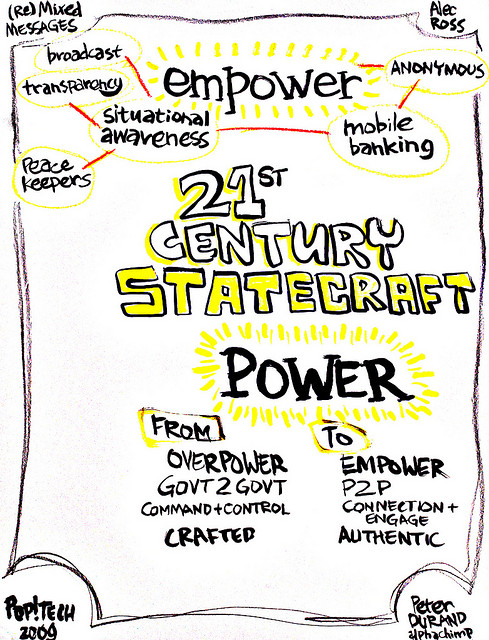 (Re) Mixed
MESSAGES
Alec
ROSS
broadcast
empower
ANONYMOUS
transparency
situational
awareness
mobile
banking
Peace
keepers
21ST
CENTURY
STATECRAFT
POWER
FROM
TO
OVERPOWER
EMPOWER
GOVT2GOVT
P2P
COMMAND+CONTROL
CONNECTION+
ENGAGE
CRAFTED
AUTHENTIC
POP!TECH
2009
Peter
DURAND
alphachimp